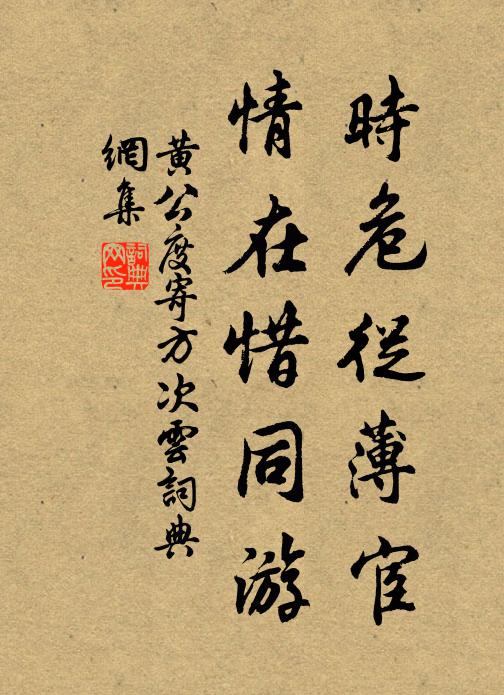 時危從薄宦
情在惜同游
黃公度寄方次雲詞典
網集
詞典
网印